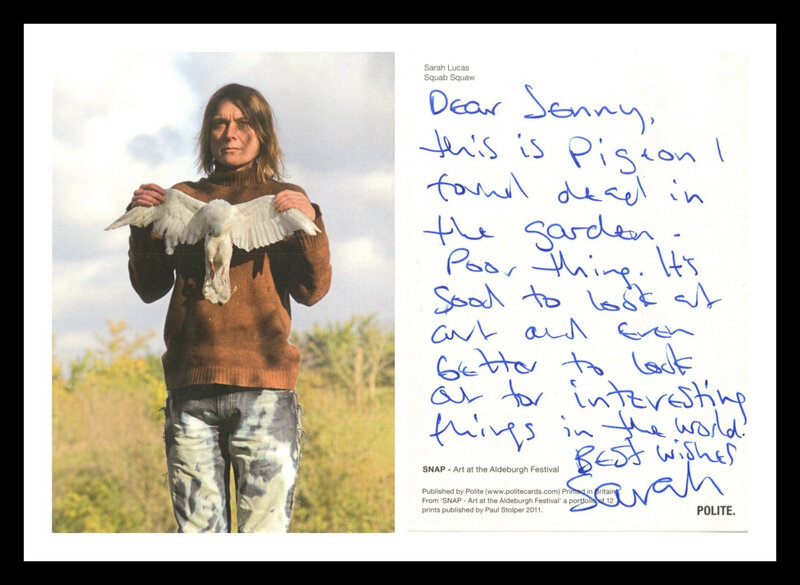 Sarah Lucas
Squab Squaw
Dear Jenny,
this is Pigeon I
found dead in
the garden -
Poor thing. It's
good to look at
art and even
better to look
out for interesting
things in the world.
Best wishes
Sarah
SNAP - Art at the Aldeburgh Festival
Published by Polite (www.politecards.com) Printed in Britain
From 'SNAP - Art at the Aldeburgh Festival' a portfolio of 12
prints published by Paul Stolper 2011.
POLITE.